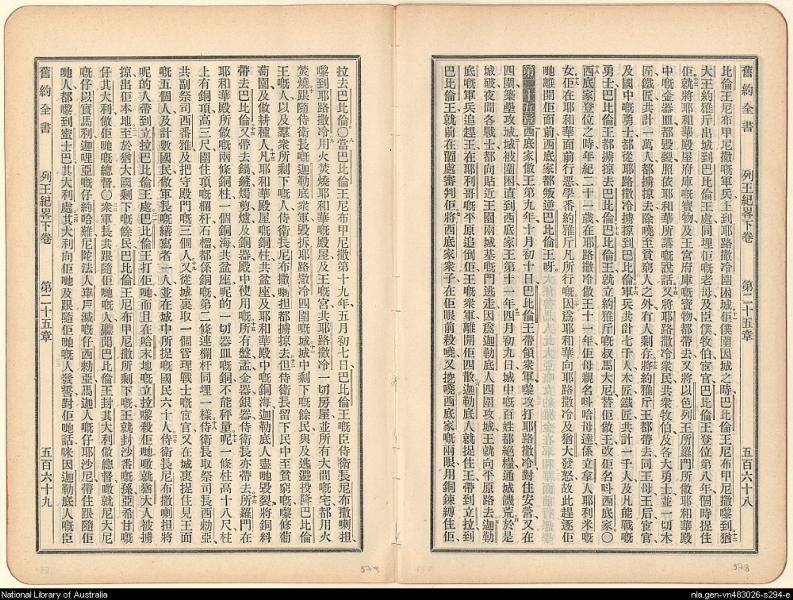 舊約全書 列王紀畧下卷 第二十五章 五百六十八
比倫王尼布甲尼撒嘅軍兵上到耶路撒冷圍困城佢僕圍困城之時巴比倫王尼布甲尼撒嚟到猶
大王約雅斤出城到巴比倫王處同埋佢嘅老母及臣僕牧伯宦官巴比倫王登位第八年個時捉住
佢就將耶和華殿屋府庫嘅寶物及王宮府庫嘅寶物都帶去又將以色列王所羅門所做耶和華殿
中嘅金器皿都毀裂照依耶和華所講嘅說話又將耶路撒冷衆民共衆牧伯及各大勇士並一切木
匠鐵匠共計一萬人都擄掠去除嘵至貧窮人之外冇人剩在將約雅斤王都帶去同王母王后宦官
及國中嘅勇士都從耶路撒冷擄掠到巴比倫軍兵共計七千人木匠鐵匠共計一千人及凡能戰嘅
勇士巴比倫王都擄掠去巴比倫巴比倫王就立約雅斤嘅叔馬大尼替佢做王改佢名叫西底家〇
西底家登位之時年紀二十一歲在耶路撒冷做王十一年佢母親名叫哈母達係立拿人耶利米嘅
女佢在耶和華面前行惡學番約雅斤凡所行嘅因爲耶和華向耶路撒冷及猶大發怒故此趕逐佢
哋離開佢面前西底家都叛逆巴比倫王呀
第二十五章 西底家做王第九年十月初十日巴比倫王帶領衆軍嚟攻打耶路撒冷對住安營又在
四圍築壘攻城城被圍困直到西底家王第十一年四月初九日城中嘅百姓都絕糧通城饑荒於是
城破夜間各戰士都向貼近王園兩城基嘅門逃走因爲迦勒底人四圍攻城王就向平原路去迦勒
底嘅軍兵追趕王在耶利哥嘅平原追倒佢王嘅衆軍離開佢四散迦勒底人就捉住王帶到立拉到
巴比倫王就前在個處審判佢將西底家衆子在佢眼前殺嘵又挖嘵西底家嘅兩眼用銅鍊縛住佢
拉去巴比倫〇當巴比倫王尼布甲尼撒第十九年五月初七日巴比倫王嘅臣侍衛長尼布撒喇担
嚟到耶路撒冷用火焚燒耶和華嘅殿屋及王嘅宮共耶路撒冷一切房屋並所有大間嘅宅都用火
焚燒跟隨侍衛長嘅迦勒底衆軍毀拆耶路撒冷四圍嘅城城中剩下嘅餘民與及逃避投降巴比倫
王嘅人以及羣衆所剩下嘅人侍衛長尼布撒喇担都擄掠去但侍衛長留下民中至貧窮嘅嚟修葡
萄園及做耕種人凡耶和華殿屋嘅銅柱共盆座及耶和華殿中嘅銅海迦勒底人盡哋毀裂將銅料
帶去巴比倫又帶去鍋鏟燭剪爐及銅器殿中使用嘅所有盤盂金器銀器侍衛長亦帶去所羅門在
耶和華殿所做嘅兩條銅柱一個銅海共盆座呢的一切器皿嘅銅不能秤量呢一條柱高十八尺柱
上有銅項高三尺圍住項嘅欄杆石榴都係銅嘅第二條連欄杆同埋一樣侍衛長取祭司長西勑亞
共副祭司西番雅及把守殿門嘅三個人又從城裏取一個管理戰士嘅宦官又在城裏捉住見王面
嘅五個人及計數國民做軍長嘅繕寫者一人並在城中所捉嘅國民六十人侍衛長尼布撒喇担將
呢的人帶到立拉巴比倫王處巴比倫王打佢哋而且在哈末地嘅立拉嚟殺佢哋噉就猶大人被擄
掠出佢本地至於猶大國剩下嘅餘民巴比倫王尼布甲尼撒所剩下嘅王就封沙番嘅孫亞希甘嘅
仔其大利做佢哋嘅總督〇衆軍長共跟隨佢哋嘅人聽聞巴比倫王封其大利做總督噉就尼大尼
嘅仔以實馬利迦哩亞嘅仔約哈難尼陀法人單戶滅嘅仔西勑亞馬迦人嘅仔耶沙尼帶住跟隨佢
哋人都嚟到蜜士巴其大利處其大利向佢哋及跟隨佢哋嘅人發誓對佢哋話咪因迦勒底人嘅臣
舊約全書 列王紀畧下卷 第二十五章 五百六十九
578
579
National Library of Australia
nla.gen-vn483026-s294-e